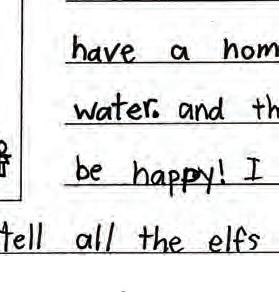 have a hom
water. and th
be happy! I
tell all the elfs